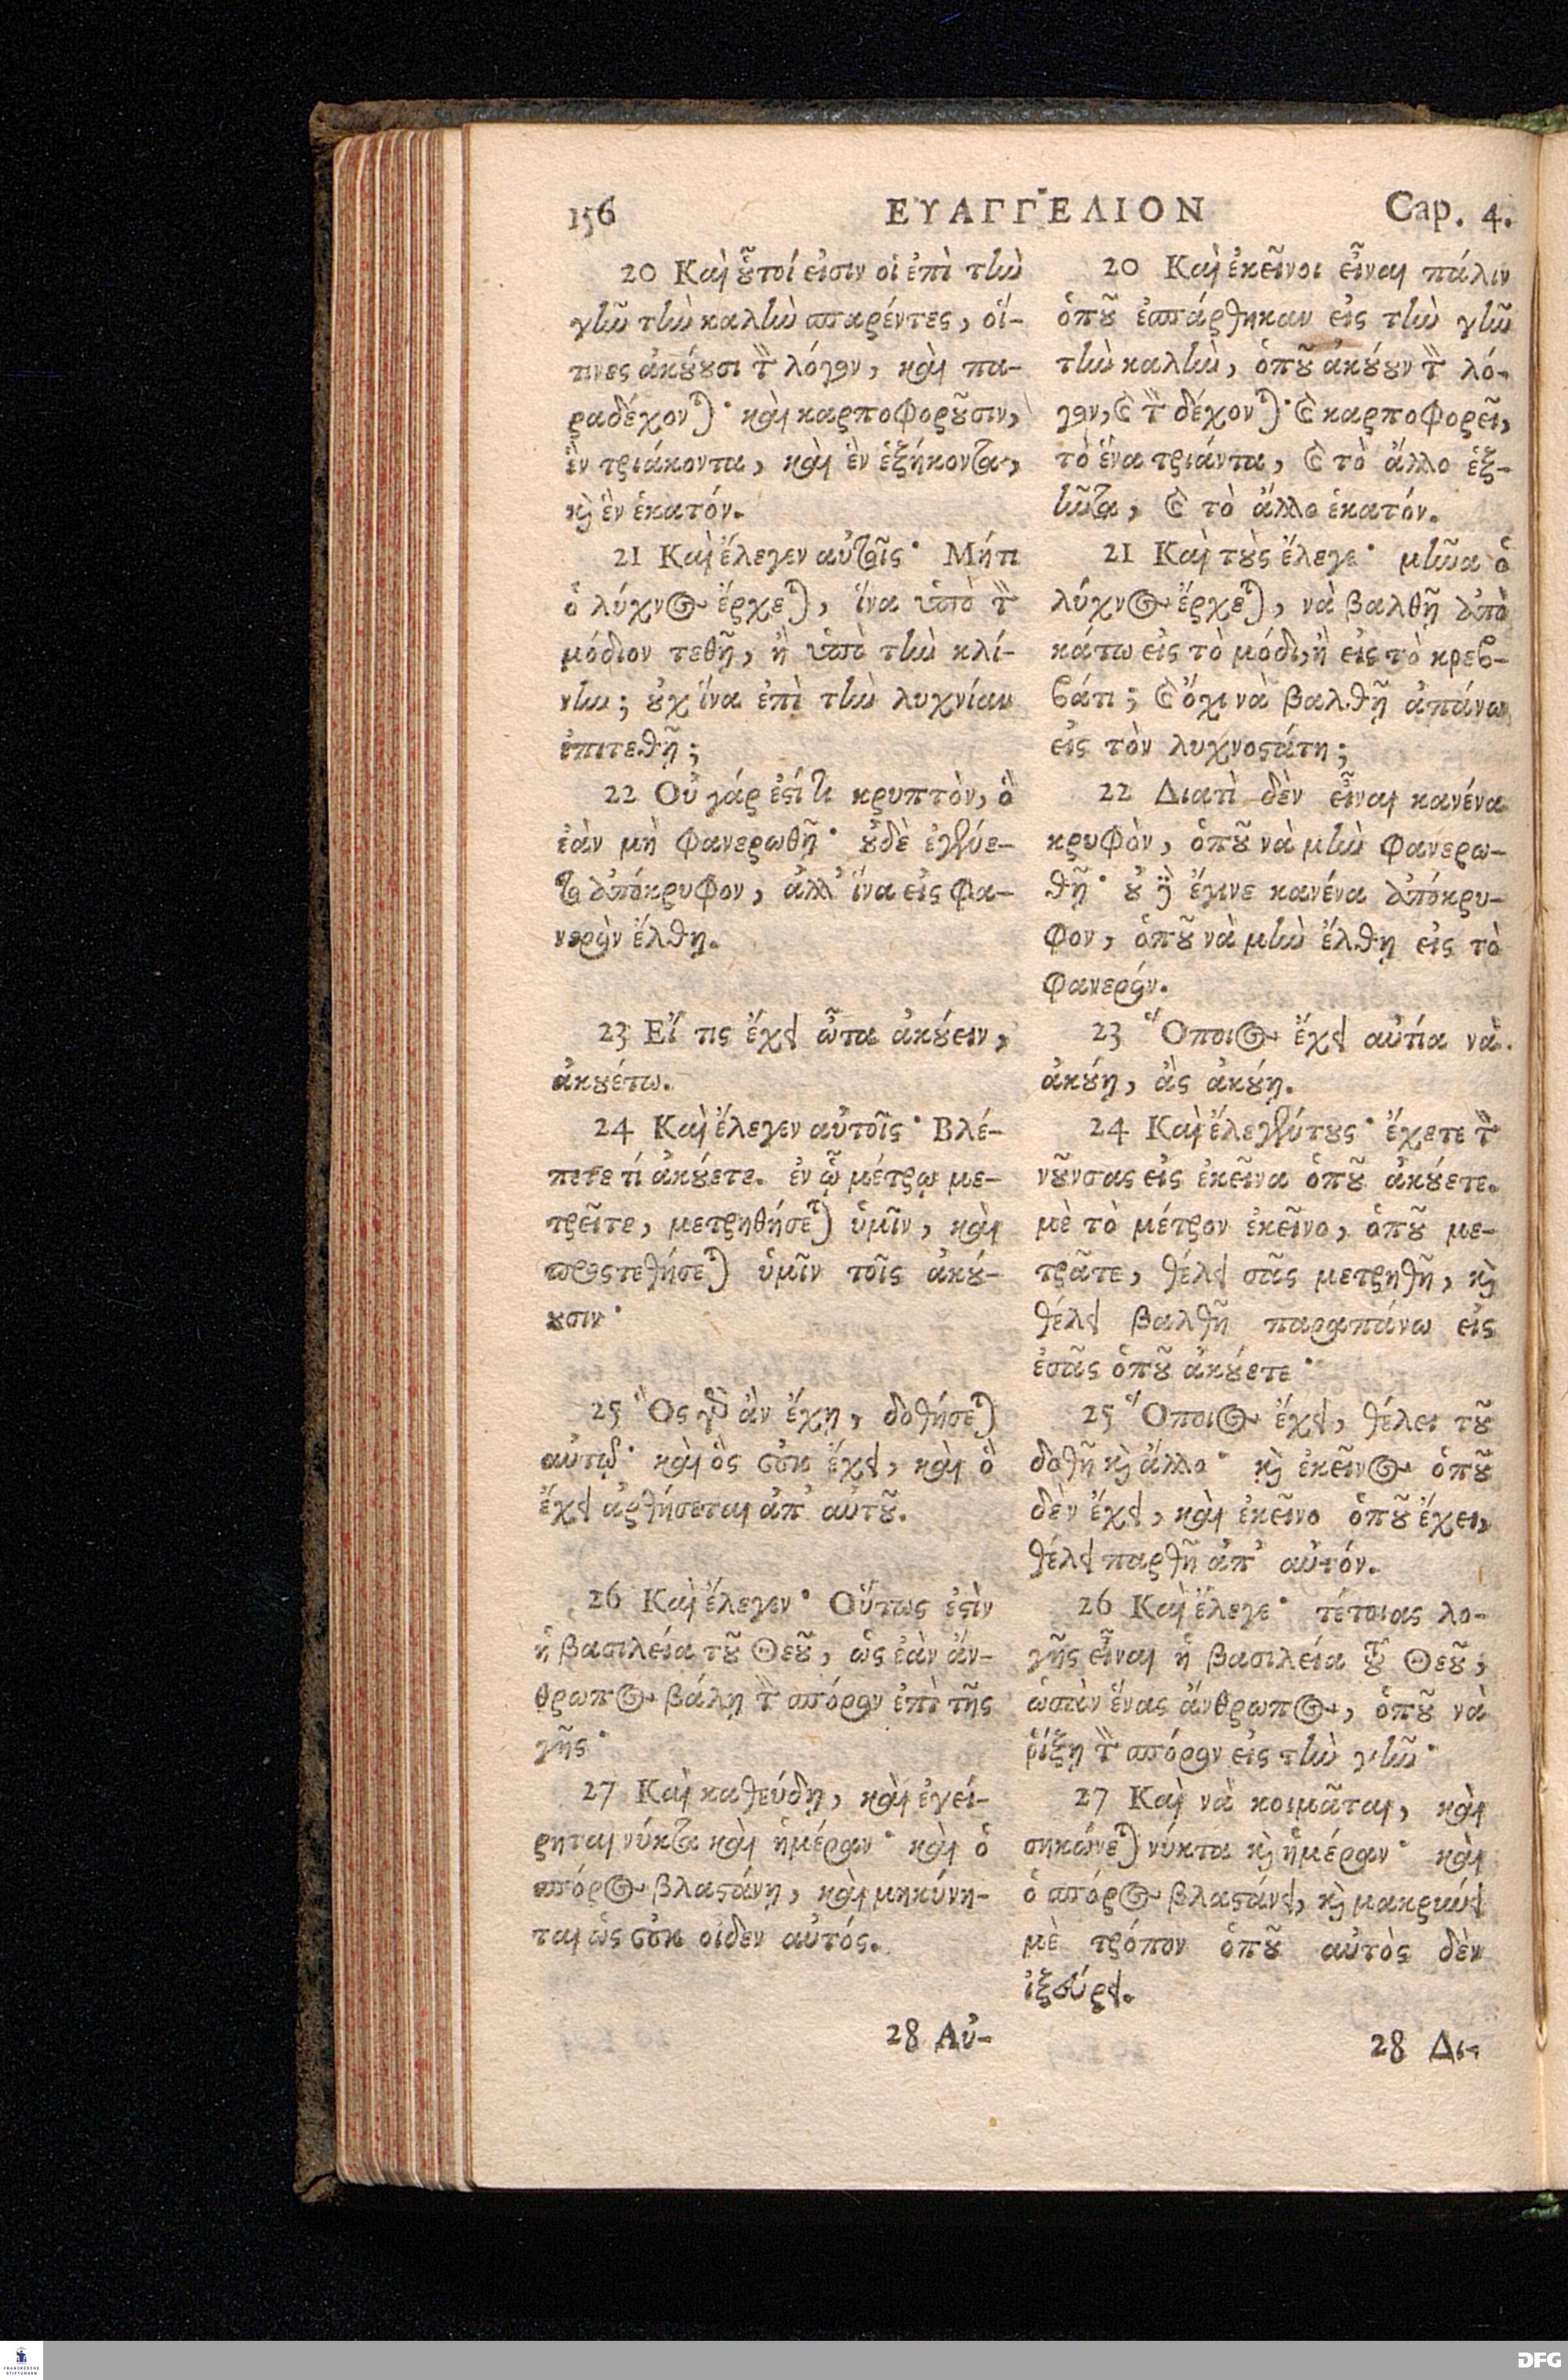 156 ΕΥΑΓΓΕΛΙΟΝ Cap. 4.
20 Καὶ οὗτοί εἰσιν οἱ ἐπὶ τὴν
γῆν τὴν καλὴν σπαρέντες, οἵ-
τινες ἀκούουσι τὸν λόγον, καὶ πα-
ραδέχονται· καὶ καρποφοροῦσιν,
ἓν τριάκοντα, καὶ ἓν ἑξήκοντα,
καὶ ἓν ἑκατόν.
21 Καὶ ἔλεγεν αὐτοῖς· Μήτι
ὁ λύχνος ἔρχεται, ἵνα ὑπὸ τὸν
μόδιον τεθῇ, ἢ ὑπὸ τὴν κλί-
νην; οὐχ ἵνα ἐπὶ τὴν λυχνίαν
ἐπιτεθῇ;
22 Οὐ γάρ ἐστί τι κρυπτὸν, ὃ
ἐὰν μὴ φανερωθῇ· οὐδὲ ἐγένε-
το ἀπόκρυφον, ἀλλ' ἵνα εἰς φα-
νερὸν ἔλθῃ.
23 Εἴ τις ἔχει ὦτα ἀκούειν,
ἀκουέτω.
24 Καὶ ἔλεγεν αὐτοῖς· Βλέ-
πετε τί ἀκούετε. ἐν ᾧ μέτρῳ με-
τρεῖτε, μετρηθήσεται ὑμῖν, καὶ
προστεθήσεται ὑμῖν τοῖς ἀκού-
ουσιν·
25 Ὃς γὰρ ἂν ἔχῃ, δοθήσεται
αὐτῷ· καὶ ὃς οὐκ ἔχει, καὶ ὃ
ἔχει ἀρθήσεται ἀπ' αὐτοῦ.
26 Καὶ ἔλεγεν· Οὕτως ἐστὶν
ἡ βασιλεία τοῦ Θεοῦ, ὡς ἐὰν ἄν-
θρωπος βάλῃ τὸν σπόρον ἐπὶ τῆς
γῆς·
27 Καὶ καθεύδῃ, καὶ ἐγεί-
ρηται νύκτα καὶ ἡμέραν· καὶ ὁ
σπόρος βλαστάνῃ, καὶ μηκύνη-
ται ὡς οὐκ οἶδεν αὐτός.
28 Αὐ-
20 Καὶ ἐκεῖνοι εἶναι πάλιν
ὁποῦ ἐσπάρθηκαν εἰς τὴν γῆν
τὴν καλὴν, ὁποῦ ἀκούουν τὸν λό-
γον, καὶ τὸν δέχονται· καὶ καρποφορεῖ,
τὸ ἕνα τριάντα, καὶ τὸ ἄλλο ἑξ-
ῆντα, καὶ τὸ ἄλλο ἑκατόν.
21 Καὶ τοὺς ἔλεγε· μῆνα ὁ
λύχνος ἔρχεται, νὰ βαλθῇ ἀπὸ
κάτω εἰς τὸ μόδι, ἢ εἰς τὸ κρεβ-
βάτι; καὶ ὄχι νὰ βαλθῇ ἀπάνω
εἰς τὸν λυχνοστάτη;
22 Διατὶ δὲν εἶναι κανένα
κρυφὸν, ὁποῦ νὰ μὴν φανερω-
θῇ· οὐδὲ ἔγινε κανένα ἀπόκρυ-
φον, ὁποῦ νὰ μὴν ἔλθῃ εἰς τὸ
φανερόν.
23 Ὅποιος ἔχει αὐτία νὰ
ἀκούῃ, ἂς ἀκούῃ.
24 Καὶ ἔλεγέν τους· ἔχετε τὸν
νοῦν σας εἰς ἐκεῖνα ὁποῦ ἀκούετε.
μὲ τὸ μέτρον ἐκεῖνο, ὁποῦ με-
τρᾶτε, θέλει σᾶς μετρηθῆ, καὶ
θέλει βαλθῆ παραπάνω εἰς
ἐσᾶς ὁποῦ ἀκούετε·
25 Ὅποιος ἔχει, θέλει τοῦ
δοθῆ καὶ ἄλλο· καὶ ἐκεῖνος ὁποῦ
δὲν ἔχει, καὶ ἐκεῖνο ὁποῦ ἔχει,
θέλει παρθῆ ἀπ' αὐτόν.
26 Καὶ ἔλεγε· τέτοιας λο-
γῆς εἶναι ἡ βασιλεία τοῦ Θεοῦ,
ὡσὰν ἕνας ἄνθρωπος, ὁποῦ νὰ
ῥίξῃ τὸν σπόρον εἰς τὴν γῆν·
27 Καὶ νὰ κοιμᾶται, καὶ
σηκώνεται νύκτα καὶ ἡμέραν· καὶ
ὁ σπόρος βλαστάνει, καὶ μακρυνει
μὲ τρόπον ὁποῦ αὐτὸς δὲν
ἰξεύρει.
28 Δι-
FRANCKESCHE
STIFTUNGEN
DFG